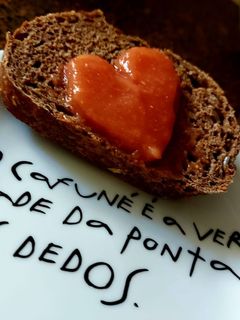 O CAFUNÉ É A VER
DADE DA PONTA
S DEDOS.